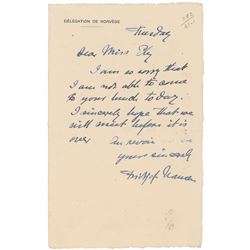 DÉLÉGATION DE NORVÈGE
Tuesday
Dear Miss Ely
I am so sorry that
I am not able to come
to your lunch to day.
I sincerely hope that we
will meet before it is
over
au revoir
yours sincerely
Fridtjof Nansen